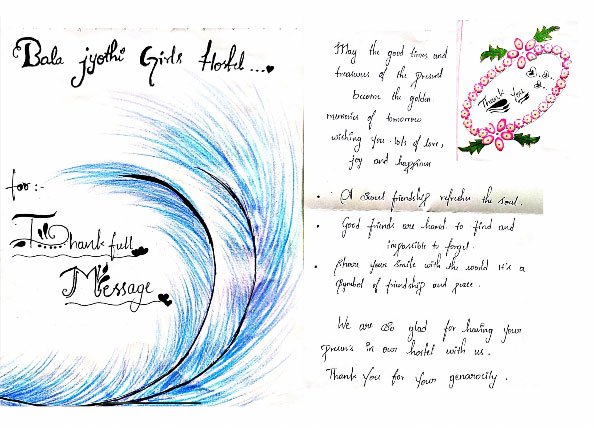 Bala jyothi Girls Hostel...
for:-
Thank full
Message
May the good times and
treasures of the present
become the golden
memories of tomorrow
wishing you lots of love,
joy and happiness
Thank You
• A sweet friendship refreshes the soul.
• Good friends are hard to find and
impossible to forget.
• Share your smile with the world It's a
symbol of friendship and peace.
We are so glad for having your
in our hostel with us.
Thank You for your genarocity.